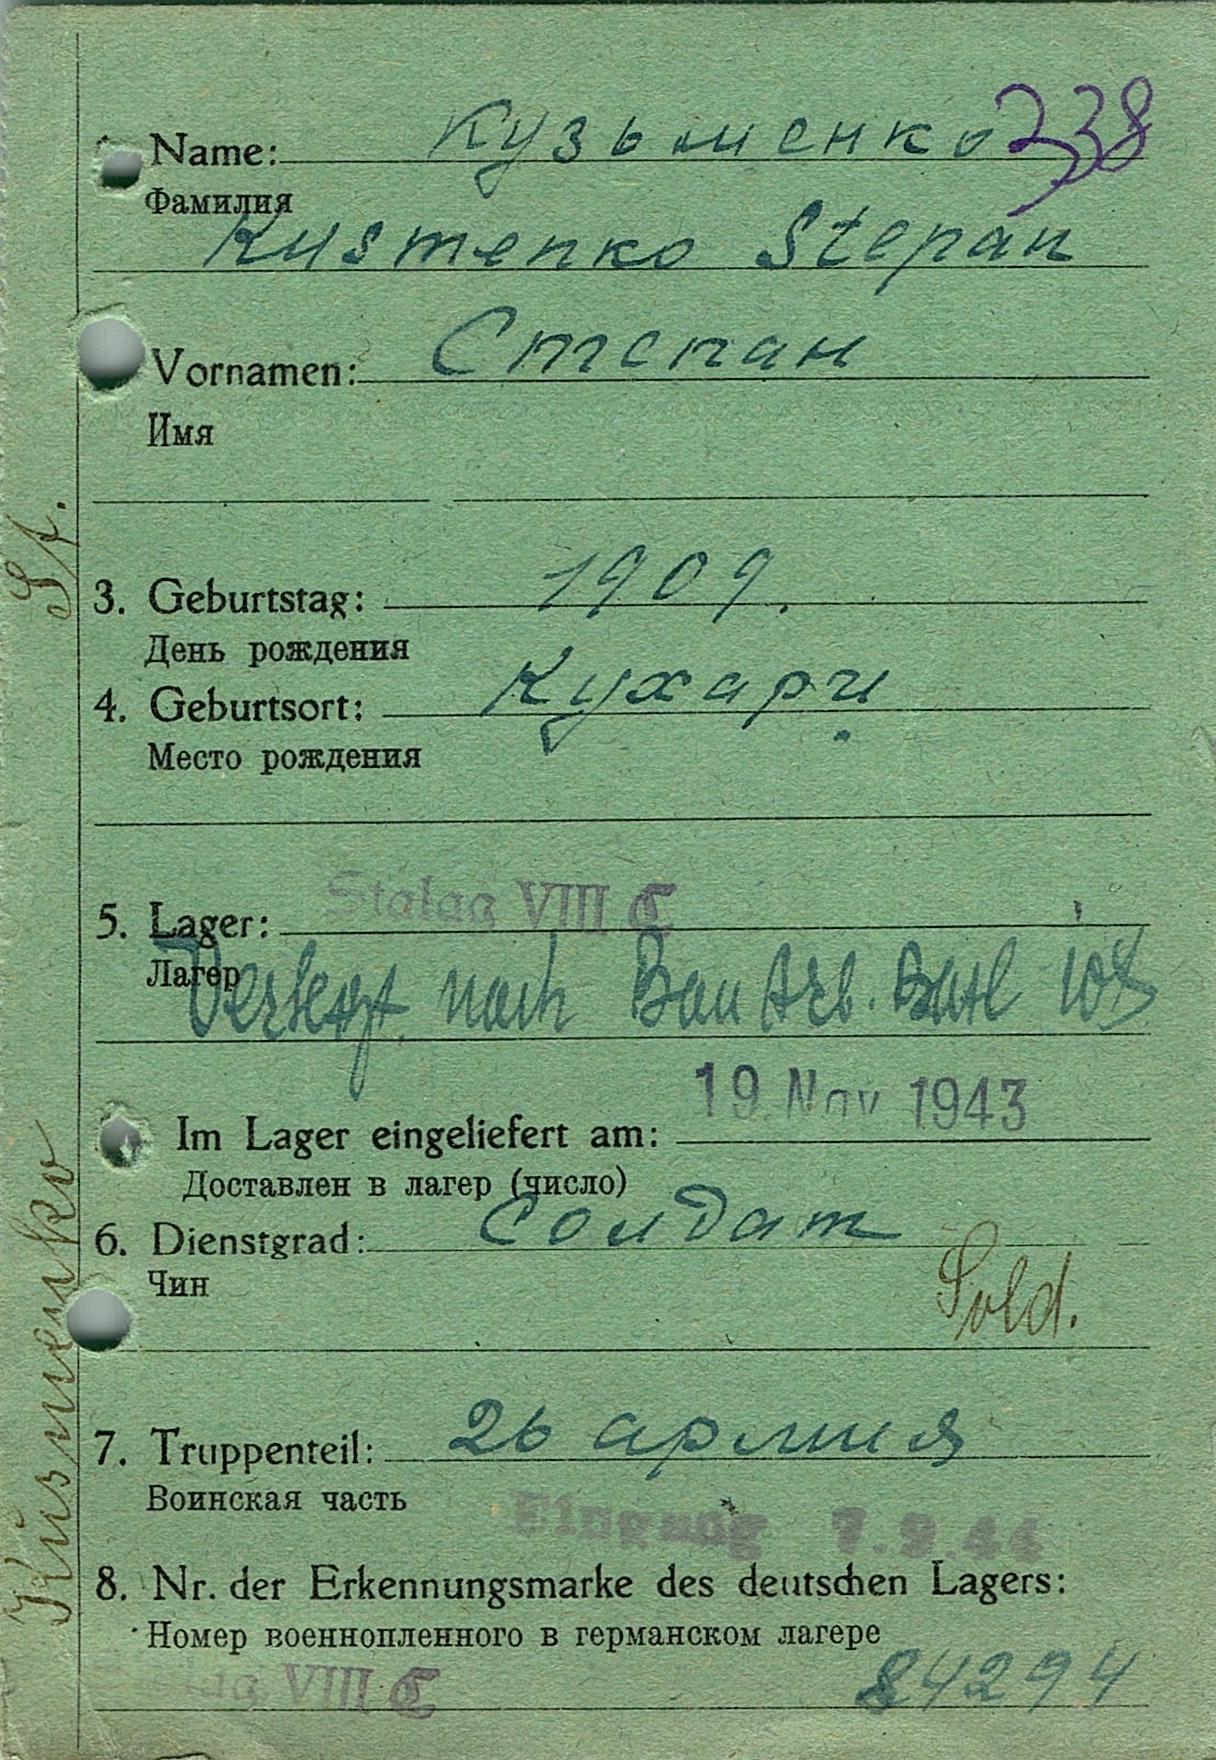 Name: Кузьменко 338
Фамилия
Kusmenko Stepan
Vornamen: Степан
Имя
St.
3. Geburtstag: 1909.
День рождения
4. Geburtsort: Кухари
Место рождения
Stalag VIII C
5. Lager:
Лагер
Versetzt nach Bau Arb. Batl 108
19. Nov 1943
Im Lager eingeliefert am:
Доставлен в лагер (число)
6. Dienstgrad: Солдат
Чин
Sold.
Kusmenko
7. Truppenteil: 26 армия
Воинская часть
Eingang 7.9.44
8. Nr. der Erkennungsmarke des deutschen Lagers:
Номер военнопленного в германском лагере
Stalag VIII C 84294